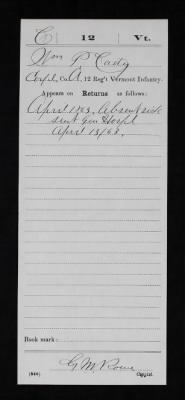 C | 12 | Vt.
Wm P. Cady
Corp'l, Co. A, 12 Reg't Vermont Infantry.
Appears on Returns as follows:
April 1863, Absent sick
sent Gen Hospl
April 13/63.
Book mark:
G. M. Rowe
(546) Copyist.